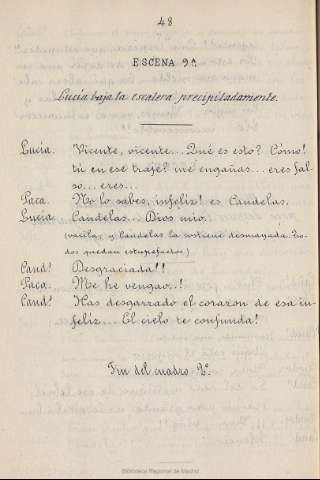 48
ESCENA 9ª
Lucía baja la escalera precipitadamente.
Lucía. Vicente, vicente... Qué es esto? Cómo!
tú en ese traje? me engañas... eres fal-
so... eres...
Paca. No lo sabes, infeliz! es Candelas.
Lucía. Candelas... Dios mío.
(vacila, y Candelas la sostiene desmayada. To-
dos quedan estupefactos)
Cand! Desgraciada!!
Paca. Me he vengao..!
Cand! Has desgarrado el corazon de esa in-
feliz... El cielo te confunda!
Fin del cuadro 2º.
Biblioteca Regional de Madrid